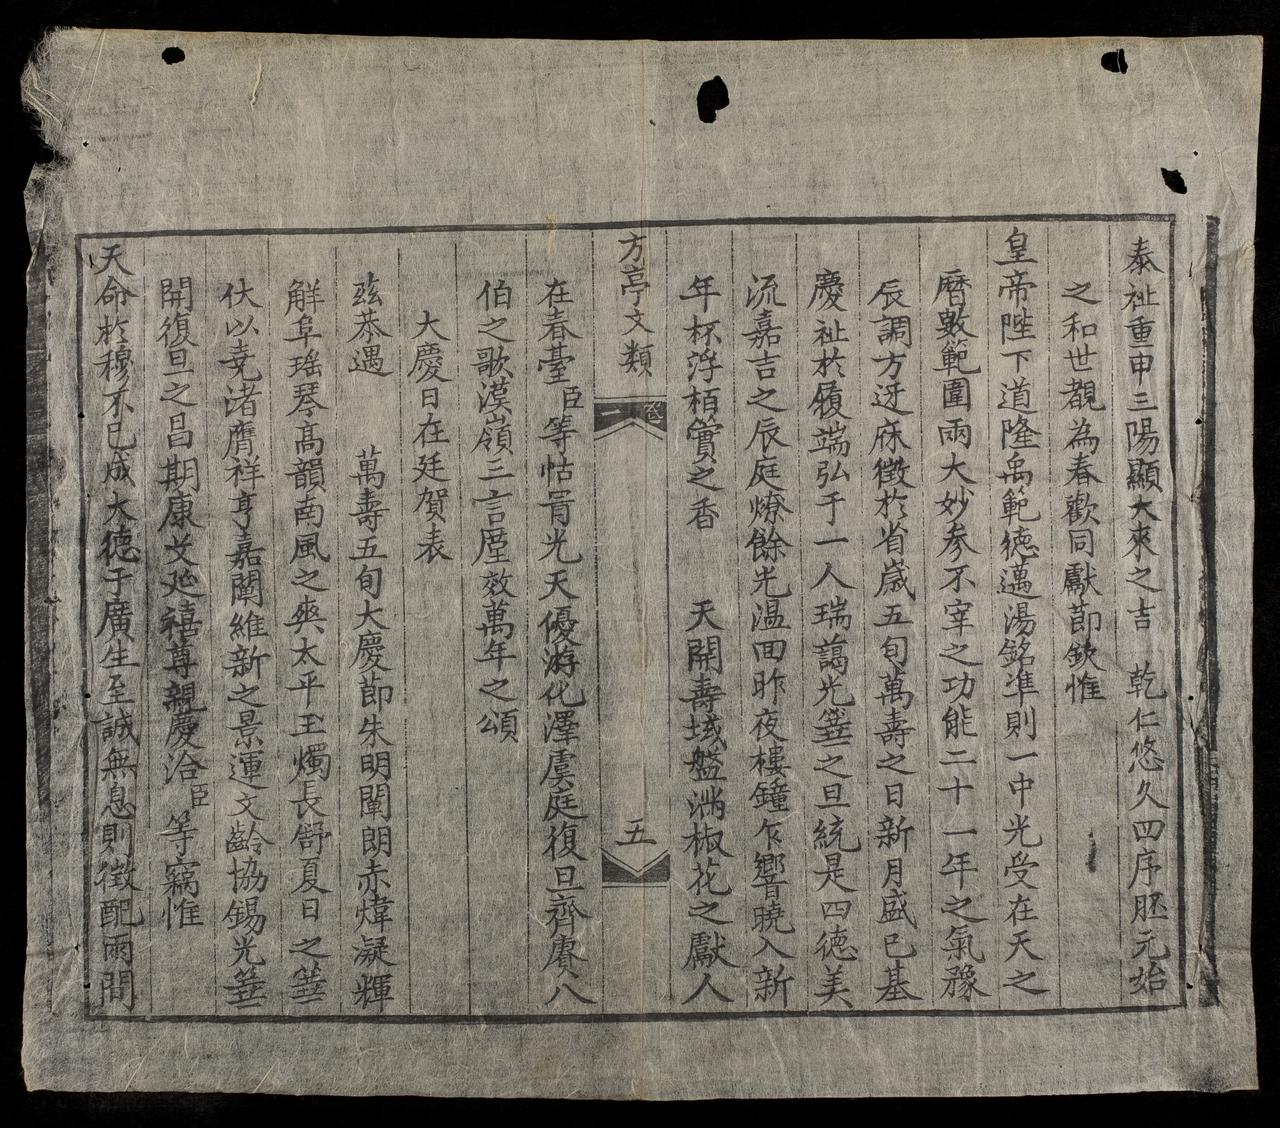 泰祉重申三陽顯大來之吉 乾仁悠久四序胚元始
之和世覩為春歡同獻節欽惟
皇帝陛下道隆禹範德邁湯銘準則一中光受在天之
曆數範圍兩大妙參不宰之功能二十一年之氣豫
辰調方迓庥徵於省歲五旬萬壽之日新月盛已基
慶祉於履端弘于一人瑞藹光筵之旦統是四德美
流嘉吉之辰庭燎餘光溫回昨夜樓鐘乍響曉入新
年杯浮栢實之香 天開壽域盤滿椒花之獻人
方亭文類 卷一 五
在春臺臣等怙冐光天優游化澤虞庭復旦齊賡八
伯之歌漢嶺三言壓效萬年之頌
大慶日在廷賀表
茲恭遇 萬壽五旬大慶節朱明闡朗赤煒凝輝
觧阜瑤琴高韻南風之奭太平玉燭長舒夏日之筵
伏以堯渚膺祥亨嘉闡維新之景運文齡協錫光筵
開復旦之昌期康文延禧尊親慶洽臣等竊惟
天命於穆不已成大德于廣生至誠無息則徵配兩間